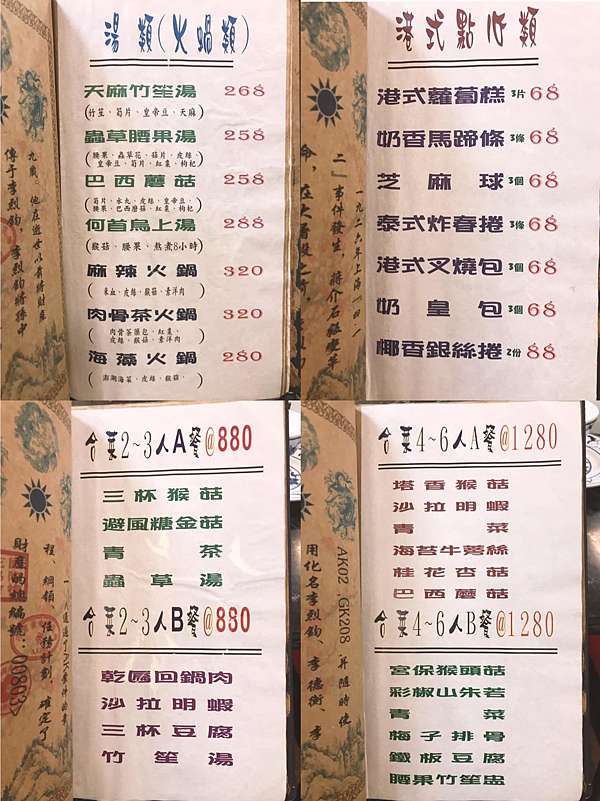 湯類(火鍋類)
天麻竹笙湯 268
(竹笙、筍片、皇帝豆、天麻)
蟲草腰果湯 258
(腰果、蟲草花、菇片、皮絲、
皇帝豆、筍片、紅棗、枸杞)
巴西蘑菇 258
(筍片、水丸、皮絲、皇帝豆、
腰果、巴西蘑菇、紅棗、枸杞)
何首烏上湯 288
(猴菇、腰果、熬煮8小時)
麻辣火鍋 320
(米血、皮絲、猴菇、素洋肉)
肉骨茶火鍋 320
(肉骨茶藥包、紅棗、
皮絲、猴菇、素洋肉)
海藻火鍋 280
(澎湖海菜、皮絲、猴菇、)
傳于李烈鈞,李烈鈞將條中
港式點心類
港式蘿蔔糕 3片 68
奶香馬蹄條 3條 68
芝麻球 3個 68
泰式炸春捲 3條 68
港式叉燒包 3個 68
奶皇包 3個 68
椰香銀絲捲 2份 88
一九二六年上海「四一
二」事件發生,蔣介石
合菜2~3人A餐@880
三杯猴菇
避風糖金菇
青茶
蟲草湯
合菜2~3人B餐@880
乾匾回鍋肉
沙拉明蝦
三杯豆腐
竹笙湯
程、綱領、任務計劃,確定了
財產的總編號:00803>
合菜4~6人A餐@1280
塔香猴菇
沙拉明蝦
青菜
海苔牛蒡絲
桂花杏菇
巴西蘑菇
合菜4~6人B餐@1280
宮保猴頭菇
彩椒山朱若
青菜
梅子排骨
鐵板豆腐
腰果竹笙盅
AK02 .GK208 并隨時使
用化名李烈鈞、李德衡、李